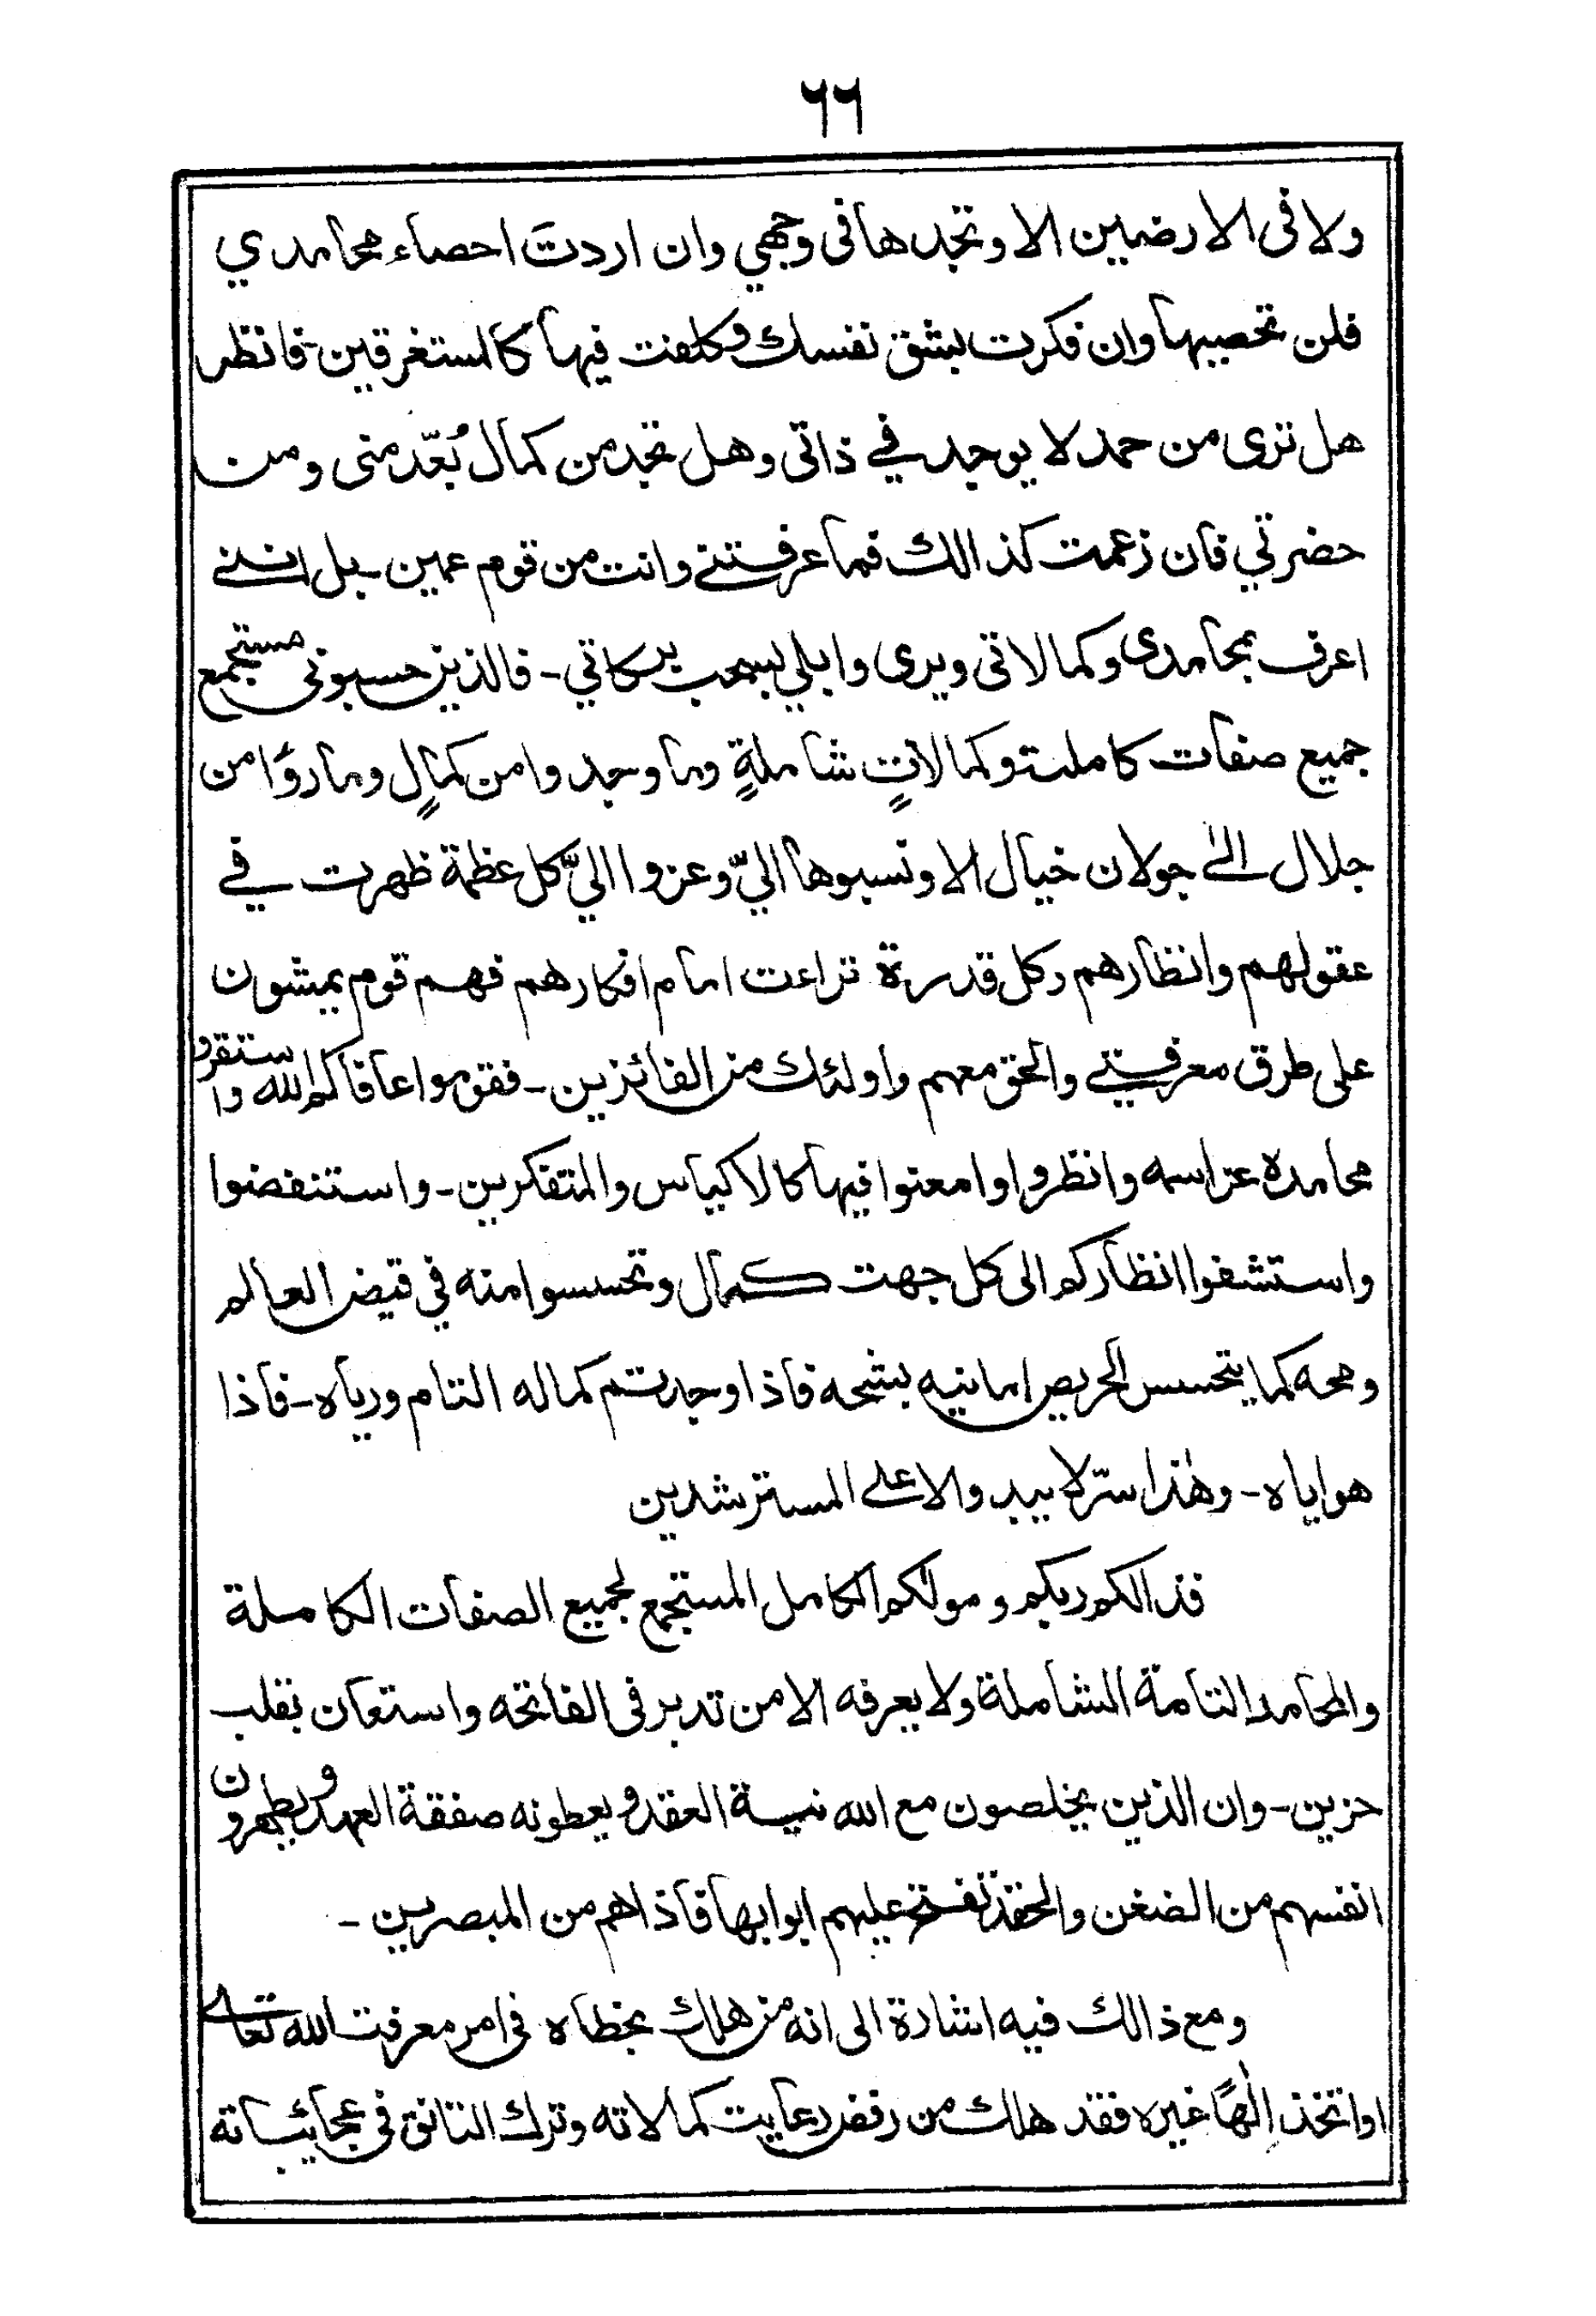 ٦٦
ولا فى الارضين الا وتجدها فى وجهي وان اردتَ احصاء محامدي
فلن تحصيها وان فكرت بشق نفسك وكلفت فيها كالمستغرقين - فانظر
هل ترى من حمد لا يوجد في ذاتى وهل تجد من كمال بُعّد منى ومن
حضرتي فان زعمت كذالك فما عرفتنے وانت من قوم عمين - بل اننے
اعرف بمحامدى وكمالاتى ويرى وابلي بسحب بركاتي - فالذين حسبونى مستجمع
جميع صفات كاملة وكمالاتٍ شاملةٍ وما وجدوا من كمالٍ وما رؤا من
جلال الىٰ جولان خيال الا ونسبوها اليّ وعزوا اليّ كل عظمة ظهرت في
عقولهم وانظارهم وكل قدرة تراءت امام افكارهم فهم قوم يمشون
على طرق معرفتي والحق معهم واولئك من الفائزين - فقوموا عافاكم الله واستقروا
محامده عز اسمه وانظروا وامعنوا فيها كالاكياس والمتفكرين - واستنفضوا
واستشفوا انظاركم الى كل جهت كمال وتحسسوا منه في قيض العالم
ومحه كما يتحسس الحريص امانيه بشحه فاذا وجدتم كماله التام ورياه - فاذا
هو اياه - وهٰذا سرّ لا يبدو الا على المسترشدين
فذالكم ربكم ومولٰكم الكامل المستجمع لجميع الصفات الكاملة
والمحامد التامة الشاملة ولا يعرفه الا من تدبر فى الفاتحه واستعان بقلب
حزين - وان الذين يخلصون مع الله نية العقد ويعطونه صفقة العهد ويطهرون
انفسهم من الضغن والحقد تفتح عليهم ابوابها فاذا هم من المبصرين -
ومع ذالك فيه اشارة الى انه من هلك بخطاه فى امر معرفت الله تعالے
او اتخذ اِلٰهًا غيره فقد هلك من رفض رعايت كمالاته وترك التانق فى عجائباته